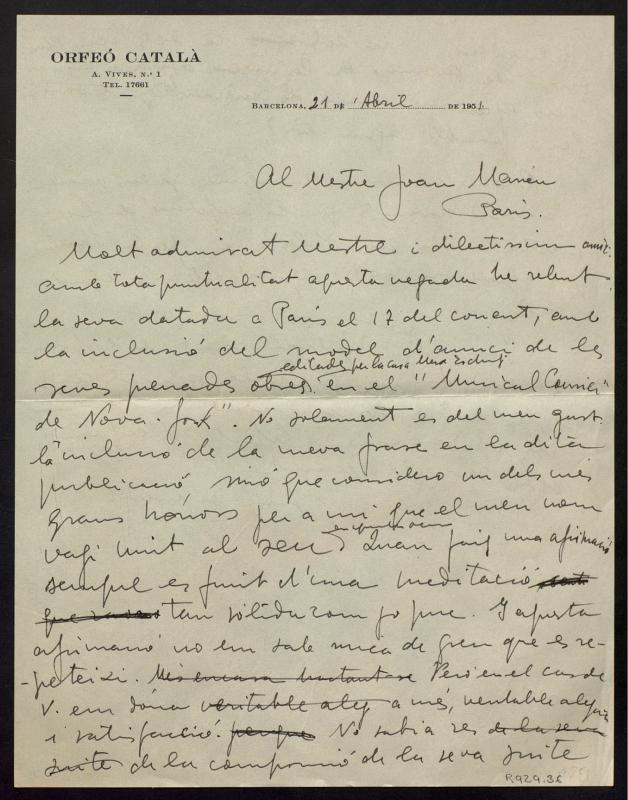 ORFEÓ CATALÀ
A. VIVES, N.º 1
TEL. 17661
BARCELONA, 21 DE Abril DE 1951
Al Mestre Joan Manén
Paris.
Molt admirat Mestre i dilectissim amic:
amb tota puntualitat aquesta vegada he rebut
la seva datada a Paris el 17 del corrent, amb
la inclusió del model d'anunci de les
editades per la casa Max Eschig
seves preuades obres en el "Musical Courier"
de Nova-York". No solament es del meu gust
la inclusió de la meva frase en la dita
publicació sinó que considero un dels més
grans honors per a mi que el meu nom
vagi unit al seu Quan faig una afirmació
sempre es fruit d'una meditació
que tan sòlida com jo puc. I aquesta
afirmació no em sab mica de greu que es re-
-peteixi. Però en el cas de
V. em dóna veritable aleg a més, veritable alegria
i satisfacció. perque No sabia res de la seva
suite de la composició de la seva suite
R.929.36